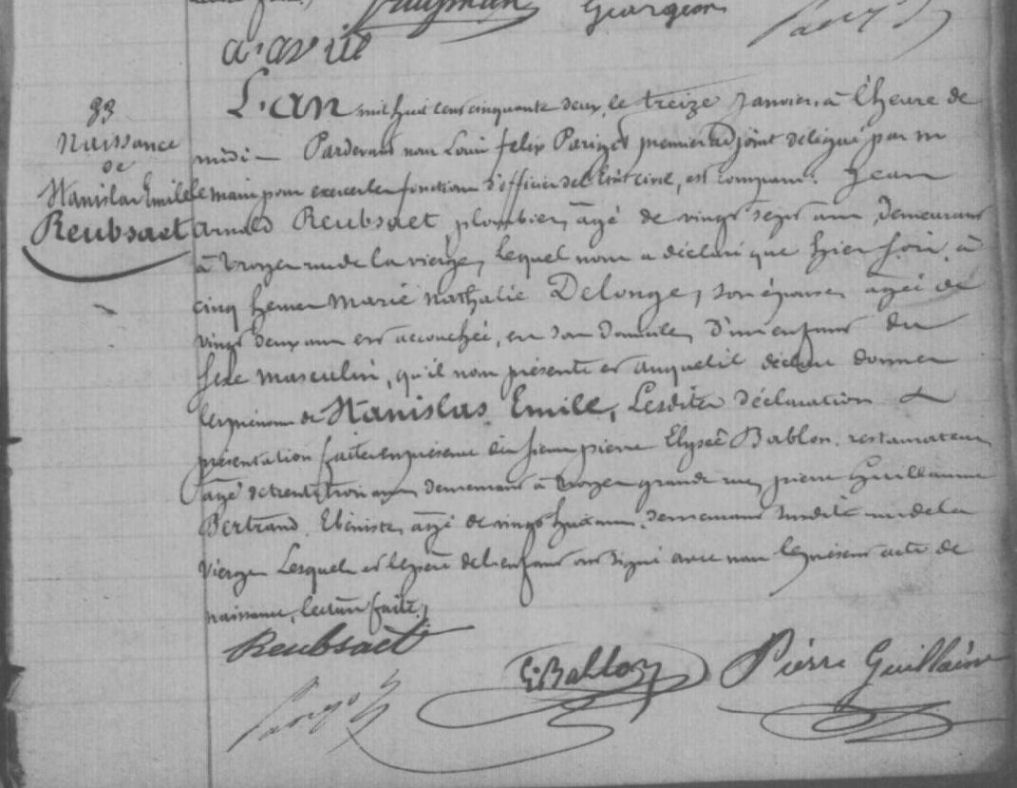 Georgeon
33
Naissance
de
Stanislas Emile
Reubsaet
L'an mil huit cent cinquante deux, le treize Janvier, à l'heure de
midi - Pardevant nous Louis felix Parizot premier adjoint délégué par m
le maire pour exercer les fonctions d'officier de l'Etat civil, est comparu Jean
Arnold Reubsaet plombier, âgé de vingt sept ans, demeurant
à Troyes rue de la vierge, lequel nous a déclaré que hier soir, à
cinq heures Marie Nathalie Delonge, son épouse, agée de
vingt deux ans est accouchée, en son domicile, d'un enfant du
sexe masculin, qu'il nous présente et auquel il déclare donner
les prénoms de Stanislas Emile, Lesdites déclaration et
présentation faites en présence des sieurs pierre Elysée Bablon, restaurateur
âgé de trente trois ans demeurant à Troyes grande rue, pierre Guillaume
Bertrand, Ebéniste, âgé de vingt huit ans, demeurant susdite rue de la
Vierge Lesquels et le père de l'enfant ont signé avec nous le présent acte de
naissance, lecture faite,
Reubsaet
E. Bablon
Pierre Guillaume